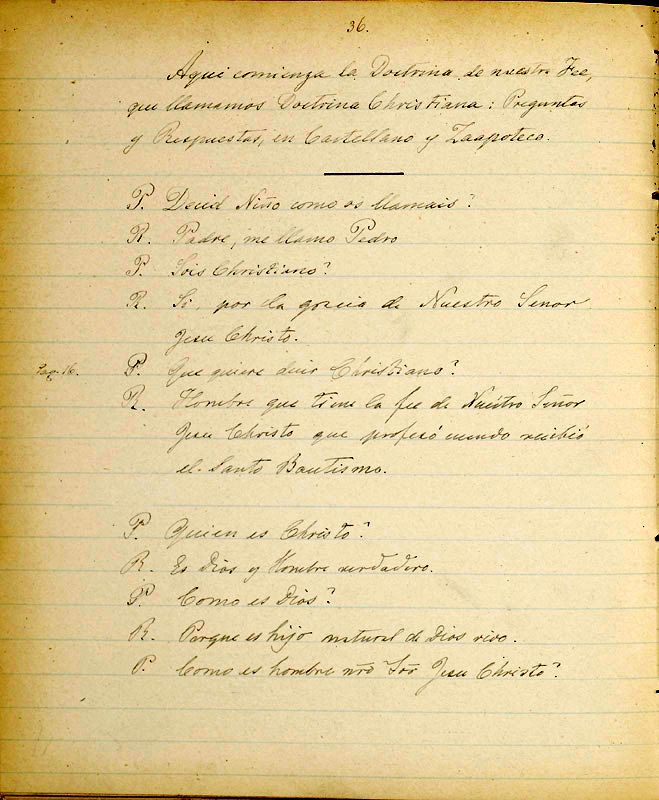 36.
Aqui comienza la Doctrina de nuestra Fee,
que llamamos Doctrina Christiana: Preguntas
y Respuestas, en Castellano y Zaapoteco.
P. Decid Niño como os llamais?
R. Padre, me llamo Pedro
P. Sois Christiano?
R. Si, por la gracia de Nuestro Señor
Jesu Christo.
Pag. 16. P. Que quiere decir Christiano?
R. Hombre que tiene la fee de Nuéstro Señor
Jesu Christo que profesó cuando recibió
el Santo Bautismo.
P. Quien es Christo?
R. Es Dios y Hombre verdadero.
P. Como es Dios?
R. Porque es hijo natural de Dios vivo.
P. Como es hombre nrõ Srõ Jesu Christo?